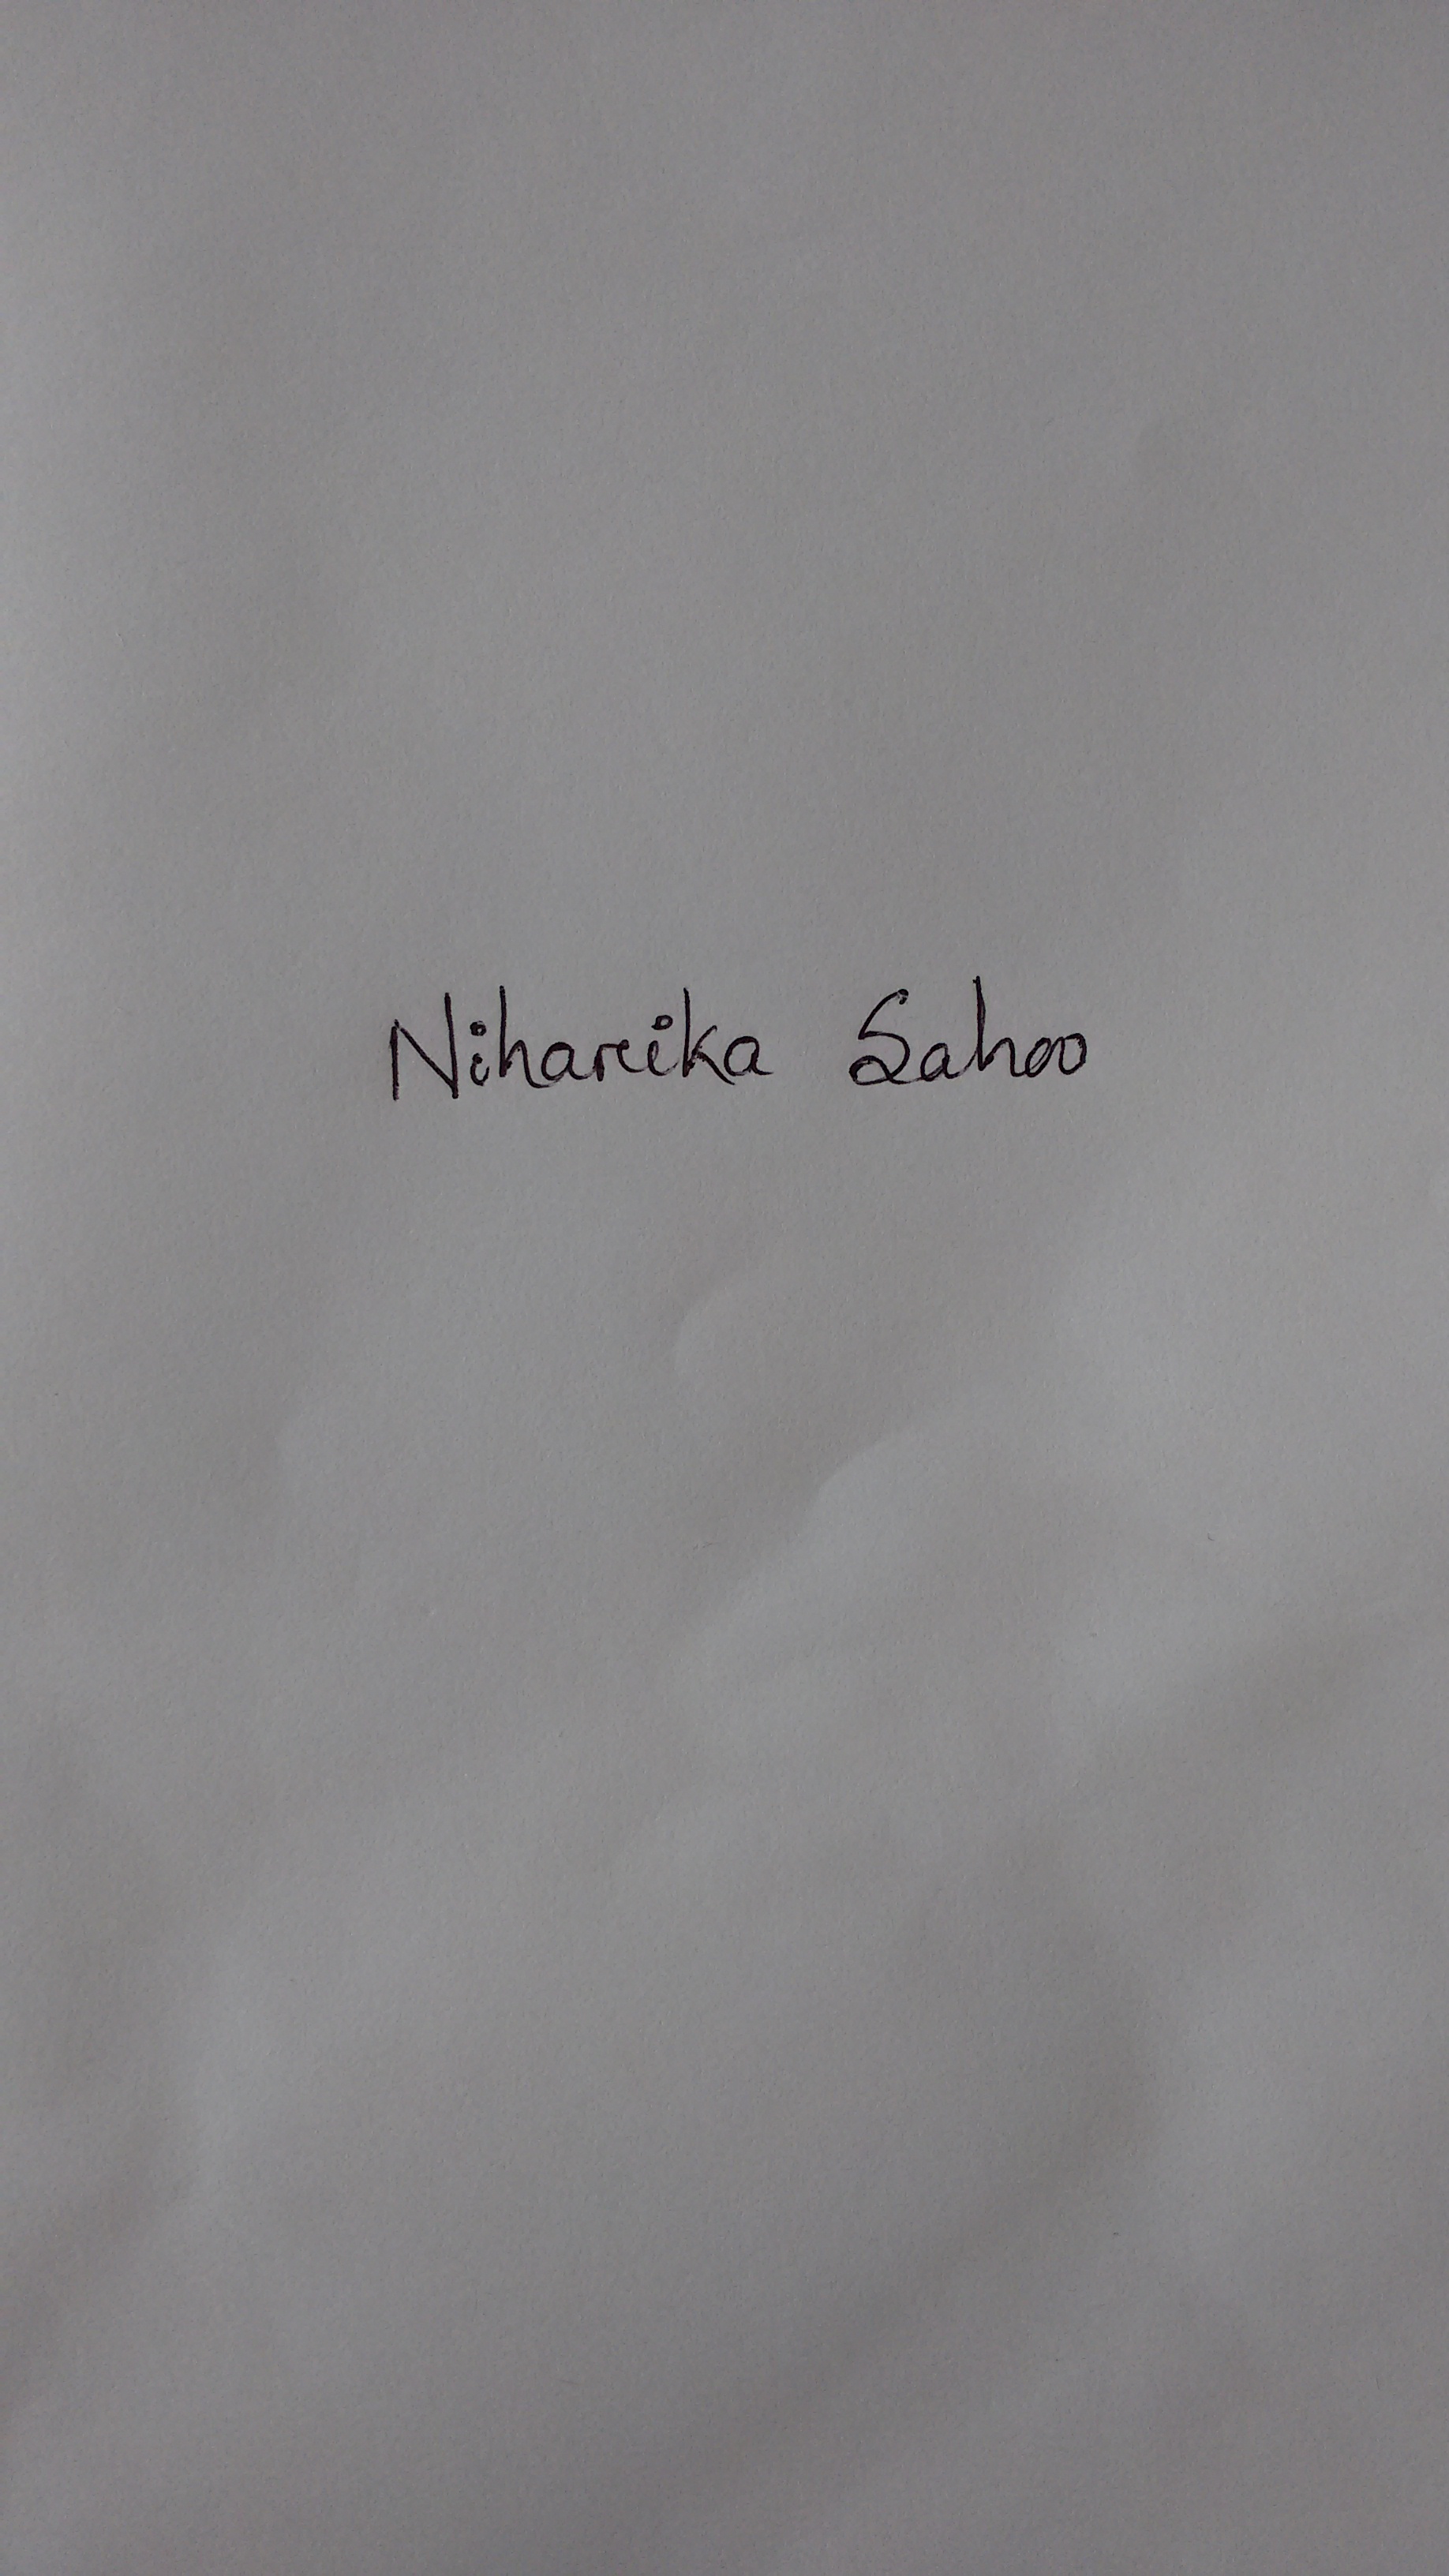 Niharika Sahoo